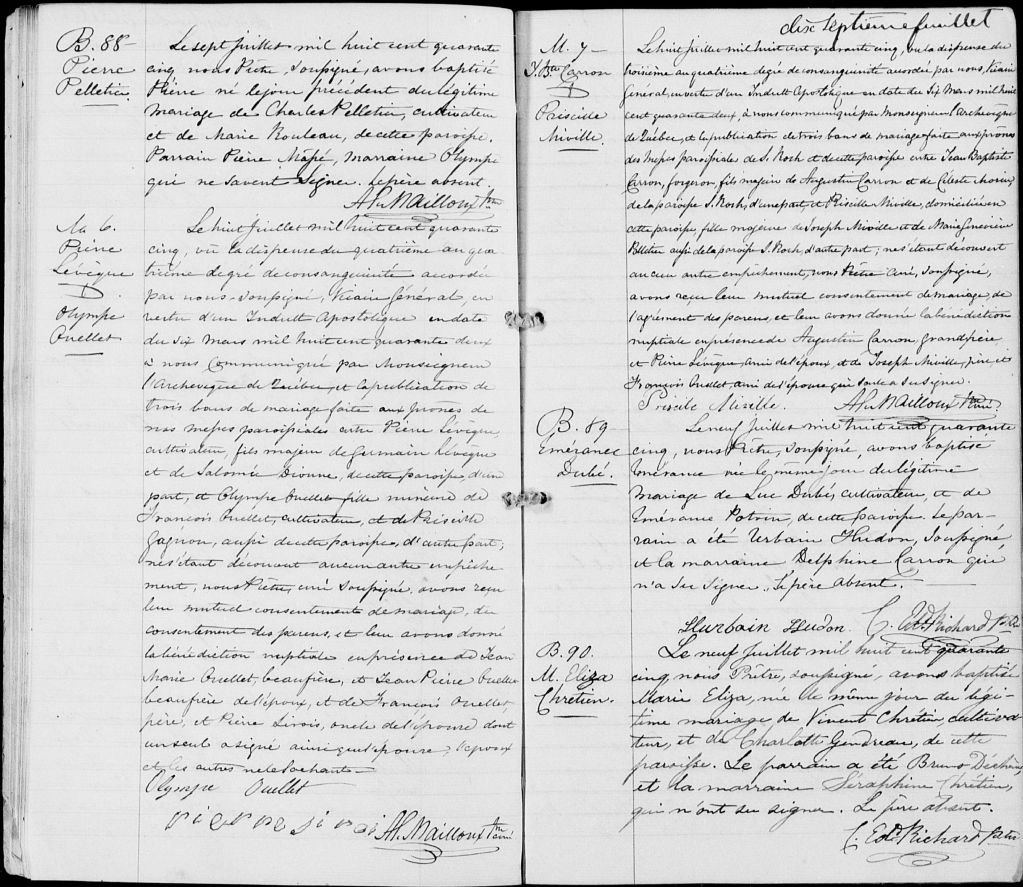 B. 88
Pierre
Pelletier
Le sept juillet mil huit cent quarante
cinq, nous Prêtre, soussigné, avons baptisé
Pierre né le jour précédent du légitime
mariage de Charles Pelletier, cultivateur
et de Marie Rouleau, de cette paroisse.
Parrain Pierre Miassé, marraine Olympe
qui ne savent signer. Le père absent.
Al. Mailloux Ptre
M 6.
Pierre
Lévêque
&
Olympe
Ouellet
Le huit juillet mil huit cent quarante
cinq, vu la dispense du quatrième au qua
trième degré de consanguinité accordée
par nous soussigné, Vicaire Général, en
vertu d'un Indult Apostolique en date
du six mars mil huit cent quarante deux
à nous communiqué par Monseigneur
l'Archevêque de Québec, et la publication de
trois bans de mariage faite aux prônes de
nos messes paroissiales entre Pierre Lévêque,
cultivateur, fils majeur de Germain Lévêque
et de Salomée Dionne, de cette paroisse d'une
part, et Olympe Ouellet fille mineure de
François Ouellet, cultivateur, et de Priscille
Gagnon, aussi de cette paroisse, d'autre part;
n'es'étant découvert aucun autre empêche
ment, nous Prêtre, curé soussigné, avons reçu
leur mutuel consentement de mariage, du
consentement des parens, et leur avons donné
la bénédiction nuptiale en présence de Jean
Marie Ouellet beaufrère, et Jean Pierre Ouellet
beaufrère de l'époux, et de François Ouellet,
père, et Pierre Sirois, oncle de l'épouse dont
un seul a signé ainsi que l'épouse, l'époux
et les autres ne le sachant
Olympe Ouellet
pierre sirois Al. Mailloux Ptre curé
dix septième feuillet
M. 7
J. Bte Carron
&
Priscille
Miville.
Le huit juillet mil huit cent quarante cinq, vu la dispense du
troisième au quatrième degré de consanguinité accordée par nous, Vicaire
Général, en vertu d'un Indult Apostolique en date du six Mars mil huit
cent quarante deux, à nous communiqué par Monseigneur l'archevêque
de Québec, et la publication de trois bans de mariage faite aux prônes
des messes paroissiales de S. Roch et de cette paroisse entre Jean Baptiste
Carron, forgeron, fils majeur de Augustin Carron et de Céleste Morin,
de la paroisse S. Roch, d'une part, et Priscille Miville, domiciliée en
cette paroisse, fille majeure de Joseph Miville et de Marie Geneviève
Pelletier aussi de la paroisse S. Roch, d'autre part; ne s'étant découvert
aucun autre empêchement, nous Prêtre curé, soussigné,
avons reçu leur mutuel consentement de mariage, de
l'agrément des parens, et leur avons donné la bénédiction
nuptiale en présence de Augustin Carron grand père,
et Pierre Lévêque, ami de l'époux, et de Joseph Miville, père, et
François Ouellet, ami de l'épouse qui seule a su signer.
Priscile Miville. Al. Mailloux Ptre curé
B. 89
Eméranee
Dubé.
Le neuf juillet mil huit cent quarante
cinq, nous Prêtre, soussigné, avons baptisé
Emérance née le même jour du légitime
mariage de Luc Dubé, cultivateur, et de
Emérance Potvin, de cette paroisse. Le par-
rain a été Urbain Hudon, soussigné,
et la marraine Delphine Carron qui
n'a su signer. Le père absent.
Hurbain Hudon. C. Edd Richard Ptre
B. 90.
M. Eliza
Chrétien.
Le neuf juillet mil huit cent quarante
cinq, nous Prêtre, soussigné, avons baptisé
Marie Eliza, née le même jour du légi-
time mariage de Vincent Chrétien, cultiva-
teur, et de Charlotte Gendreau, de cette
paroisse. Le parrain a été Bruno Déchêne
et la marraine Séraphine Chrétien,
qui n'ont su signer. Le père absent.
C. Edd Richard Ptre